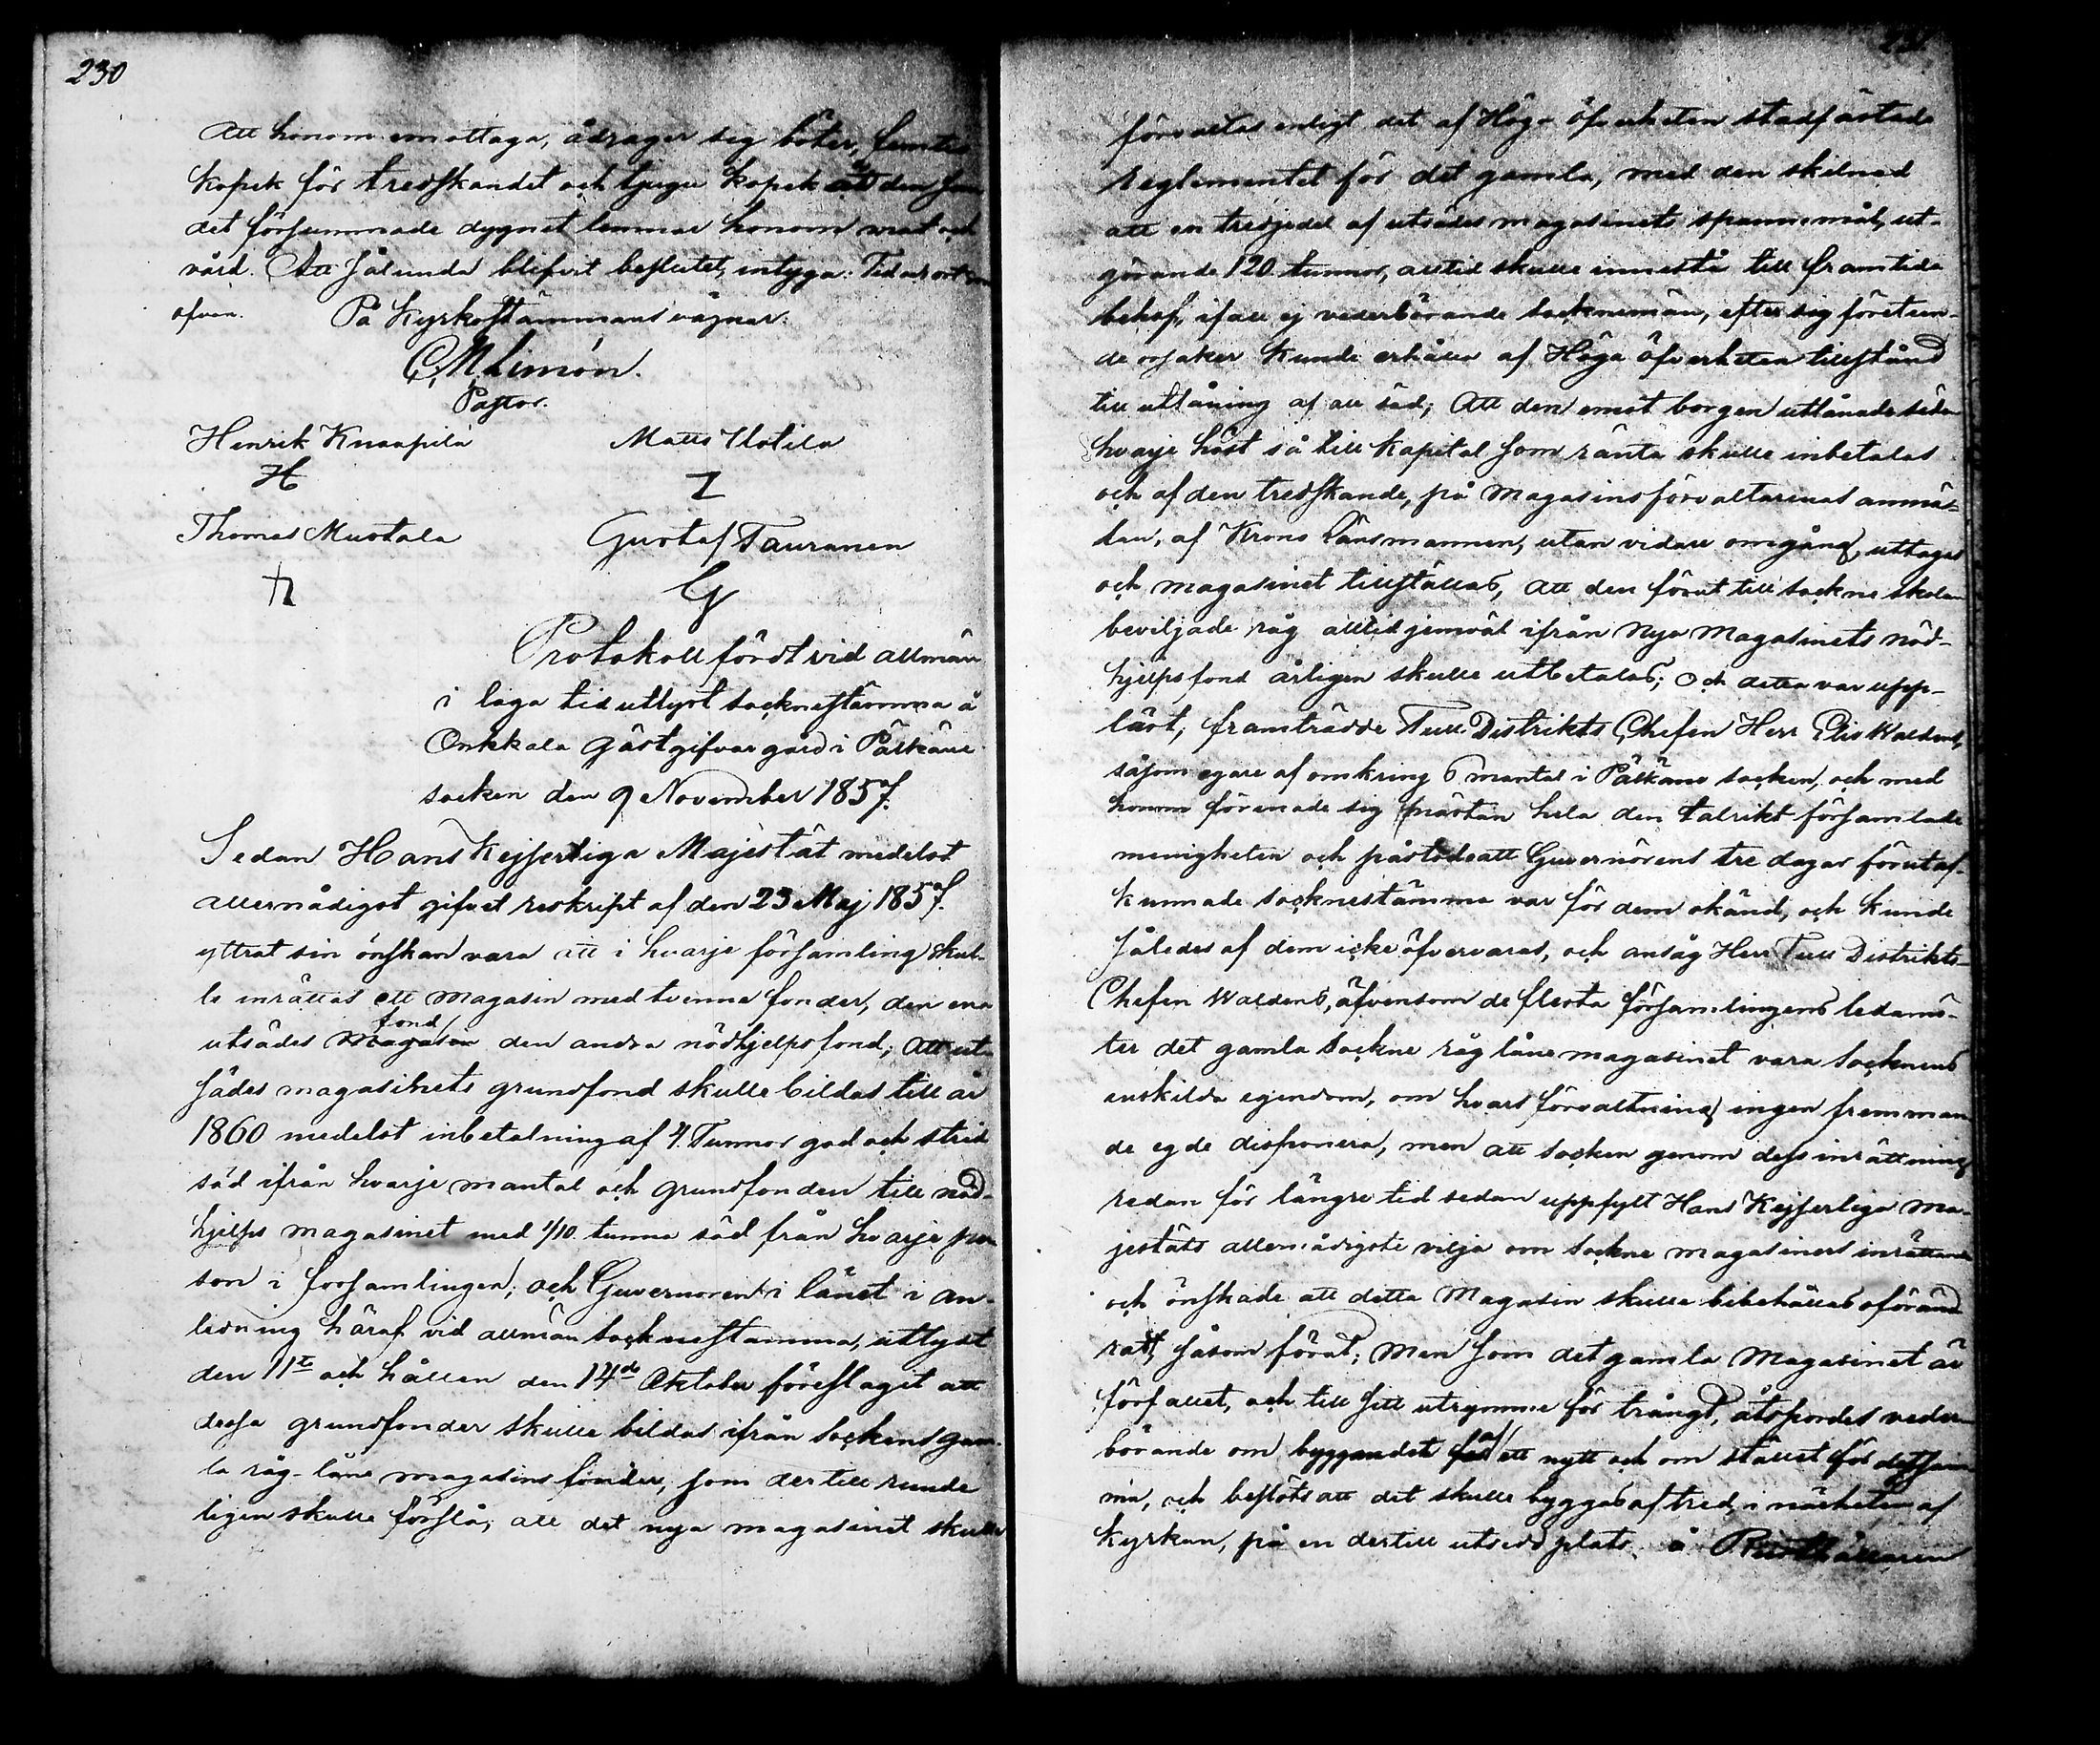 230
Att honom emottaga, ådrager sig böter, femtio
kopek för tredskandet och tjugu kopek åt den som
det försummade dygnet lemnar honom mat och
vård. Att sålunda blifvit beslutet, intyga: Tid och ort som
ofvan. På Kyrkostämmans vägnar:
C. M. Limón.
Pastor.
Henrik Knaapila Matts Uotila
H I
Thomas Mustala Gustaf Tauranen
G
Protokoll fördt vid allmän
i laga tid utlyst socknestämma å
Onkkala gästgifvaregård i Pälkäne
socken den 9 November 1857.
Sedan Hans Kejserliga Majestät medelst
allernådigst gifvet reskript af den 23 Maj 1857.
yttrat sin önskan vara att i hvarje församling skul-
le inrättas ett magasin med tvenne fonder, den ena
fond
utsädes magasin den andra nödhjelpsfond; Att ut-
sädes magasinets grundfond skulle bildas till år
1860 medelst inbetalning af 4. Tunnor god och strid
säd ifrån hvarje mantal och grundfonden till nöd-
hjelps magasinet med 1/10 tunna säd från hvarje per-
son i församlingen; och Guvernören i länet i an-
ledning häraf vid allmän socknestämma, utlyst
den 11te och hållen den 14de Oktober föreslagit att
dessa grundfonder skulle bildas ifrån sockens gam-
la råg-låne magasins fonder, som dertill runde
ligen skulle förslå; att det nya magasinet skulle
231
förvaltas enligt det af Höga öfverheten stadfästade
reglementet för det gamla, med den skilnad
att en tredjedel af utsädes magasinets spannemål, ut-
görande 120 tunnor, alltid skulle innestå till framtida
behof, ifall ej vederbörande socknemän, efter sig företeen-
de orsaker kunde erhålla af Höga öfverheten tillstånd
till utlåning af all säd; Att den emot borgen utlånade säden
hvarje höst så till kapital som ränta skulle inbetalas
och af den tredskande, på magasinsförvaltarenas anmä-
lan, af Krono Länsmannen, utan vidare omgång, uttagas
och magasinet tillställas, att den förut till sockne skolan
beviljade råg alltid jemväl ifrån nya magasinets nöd-
hjelpsfond årligen skulle utbetalas; Och detta var upp-
läst, framträdde Tull Distrikts Chefen Herr Elis Waldens,
såsom egare af omkring 6 mantal i Pälkäne socken, och med
honom förenade sig nästan hela den talrikt församlade
menigheten och påstod att Guvernörens tre dagar förut af-
kunnade socknestämma var för dem okänd, och kunde
således af dem icke öfvervaras, och ansåg Herr Tull Distrikts-
Chefen Waldens, äfvensom de flesta församlingens ledamö-
ter det gamla sockne råg låne magasinet vara socknens
enskilda egendom, om hvars förvaltning ingen fremman-
de egde disponera, men att socken genom dess inrättning
redan för längre tid sedan uppfylt Hans Kejserliga Ma-
jestäts allernådigste vilja om sockne magasiners inrättande
och önskade att detta Magasin skulle bibehållas oföränd-
radt, såsom förut; Men som det gamla Magasinet är
förfallet, och till sitt utrymme för trångt, åtspordes veder-
af
börande om byggandet ett nytt och om stället för detsam-
ma, och beslöts att det skulle byggas af träd, i närheten af
kyrkan, på en dertill utsedd plats å Rusthållaren